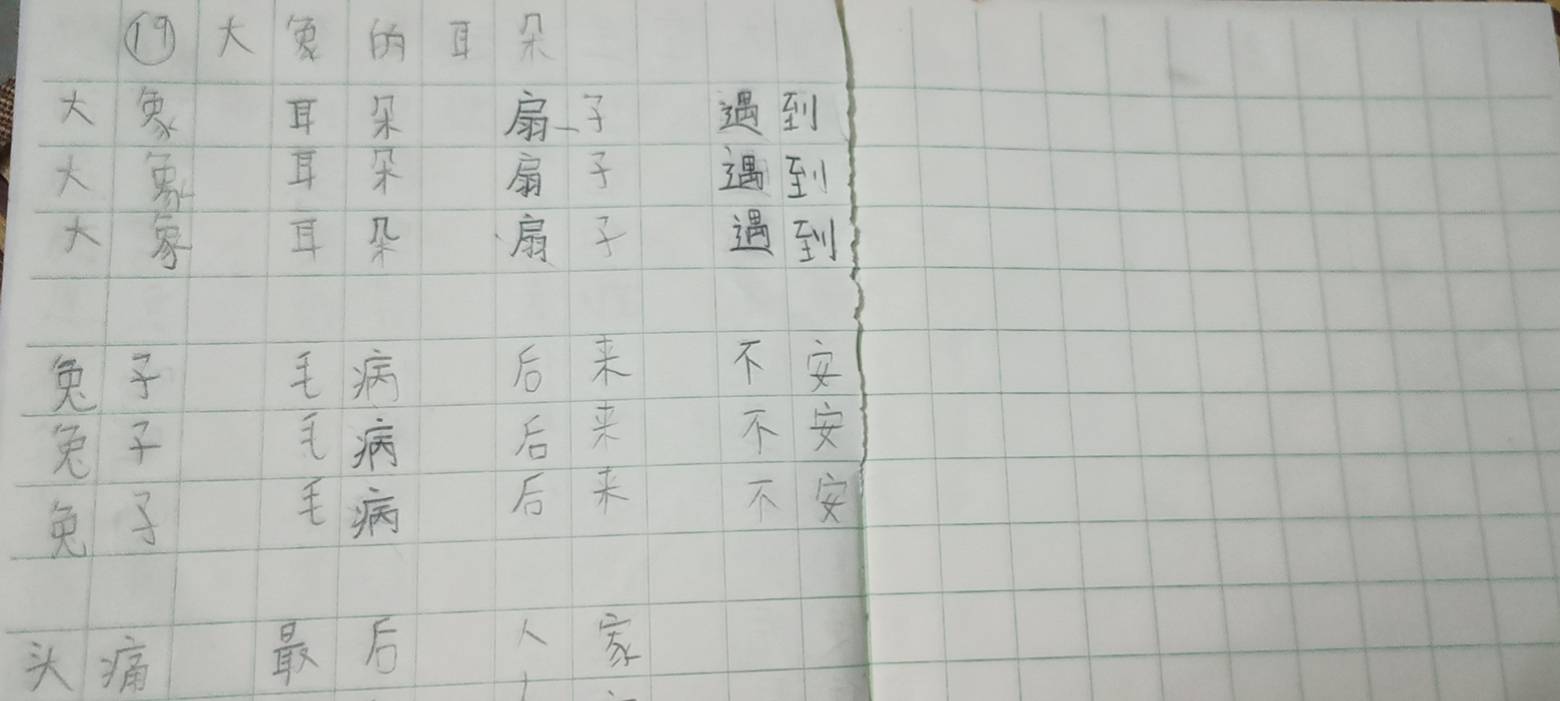 ⑲ 大象的耳朵
大象 耳朵 扇子 遇到
大象 耳朵 扇子 遇到
大象 耳朵 扇子 遇到
兔子 毛病 后来 不安
兔子 毛病 后来 不安
兔子 毛病 后来 不安
头痛 最后 人家